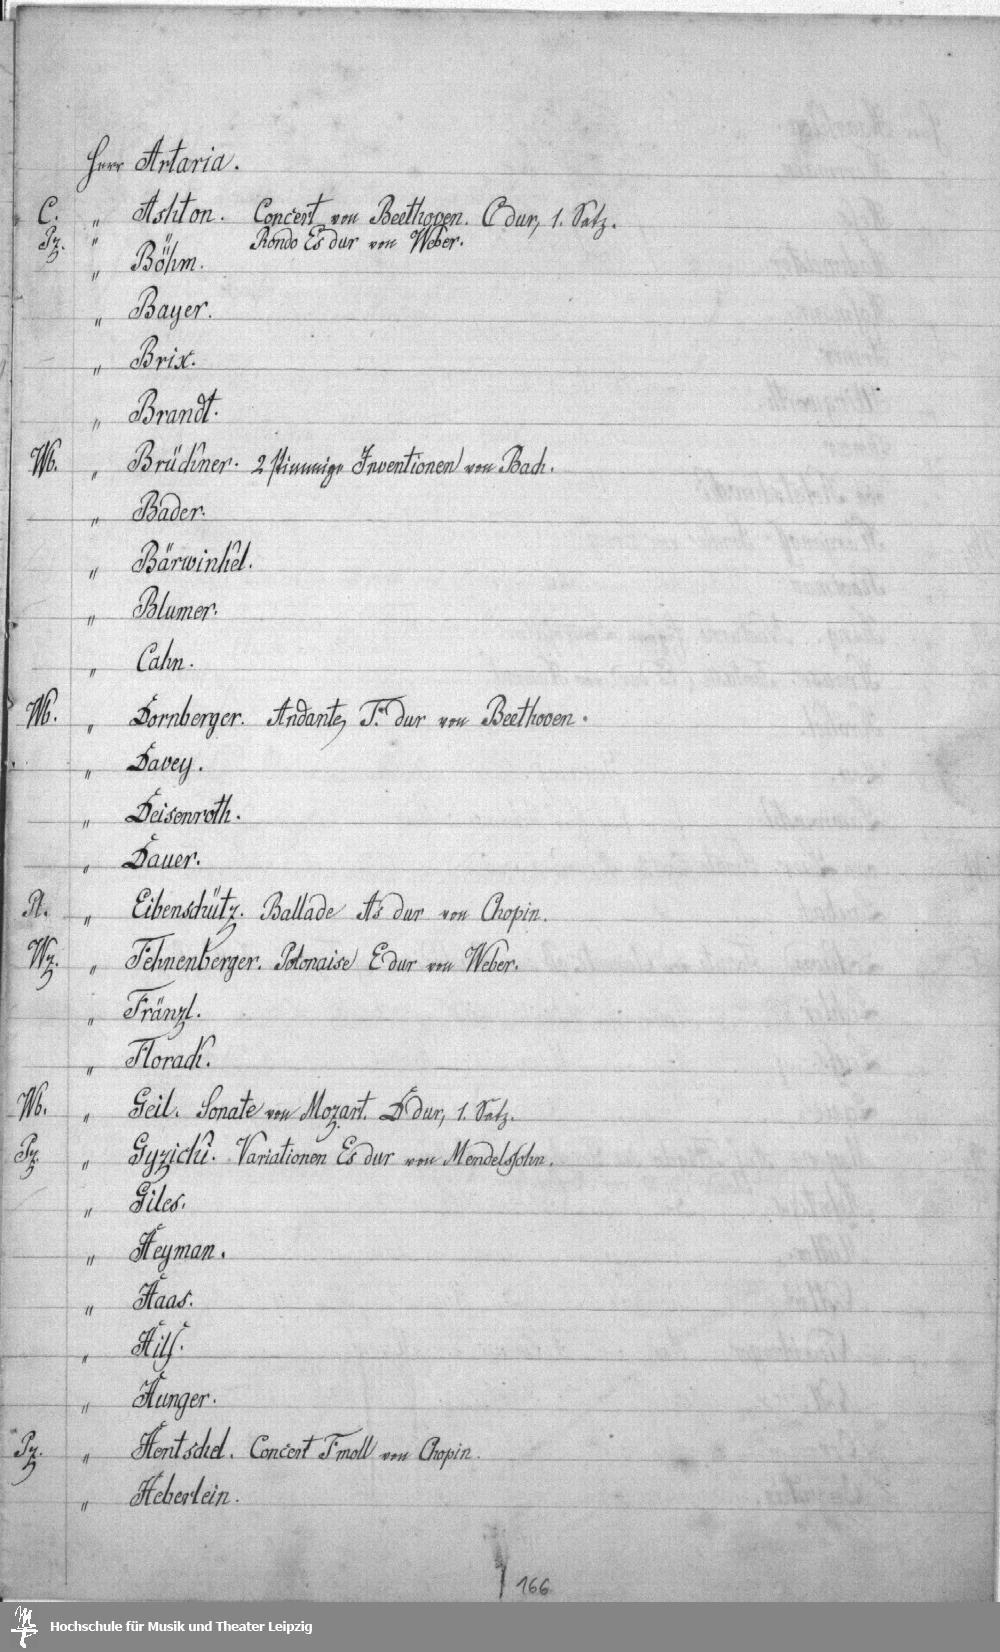 Herr Artaria.
C. " Ashton. Concert von Beethoven. C dur, 1. Satz.
Pz. " " Rondo Es dur von Weber.
" Böhm.
" Bayer.
" Brix.
" Brandt.
Wb. " Brückner. 2 stimmige Inventionen von Bach.
" Bader.
" Bärwinkel.
" Blumer.
" Cahn.
Wb. " Dornberger. Andante, F. dur von Beethoven.
" Davey.
" Deisenroth.
" Dauer.
" Eibenschütz. Ballade As dur von Chopin.
Wz. " Fehnenberger. Polonaise E dur von Weber.
" Fränzl.
" Florack.
Wb. " Geil. Sonate von Mozart. D dur, 1. Satz.
Pz. " Gyzicki. Variationen Es dur von Mendelssohn.
" Giles.
" Heyman.
" Haas.
" Hilf.
" Hunger.
Pz. " Hentschel. Concert F moll von Chopin.
" Heberlein.
166
Hochschule für Musik und Theater Leipzig